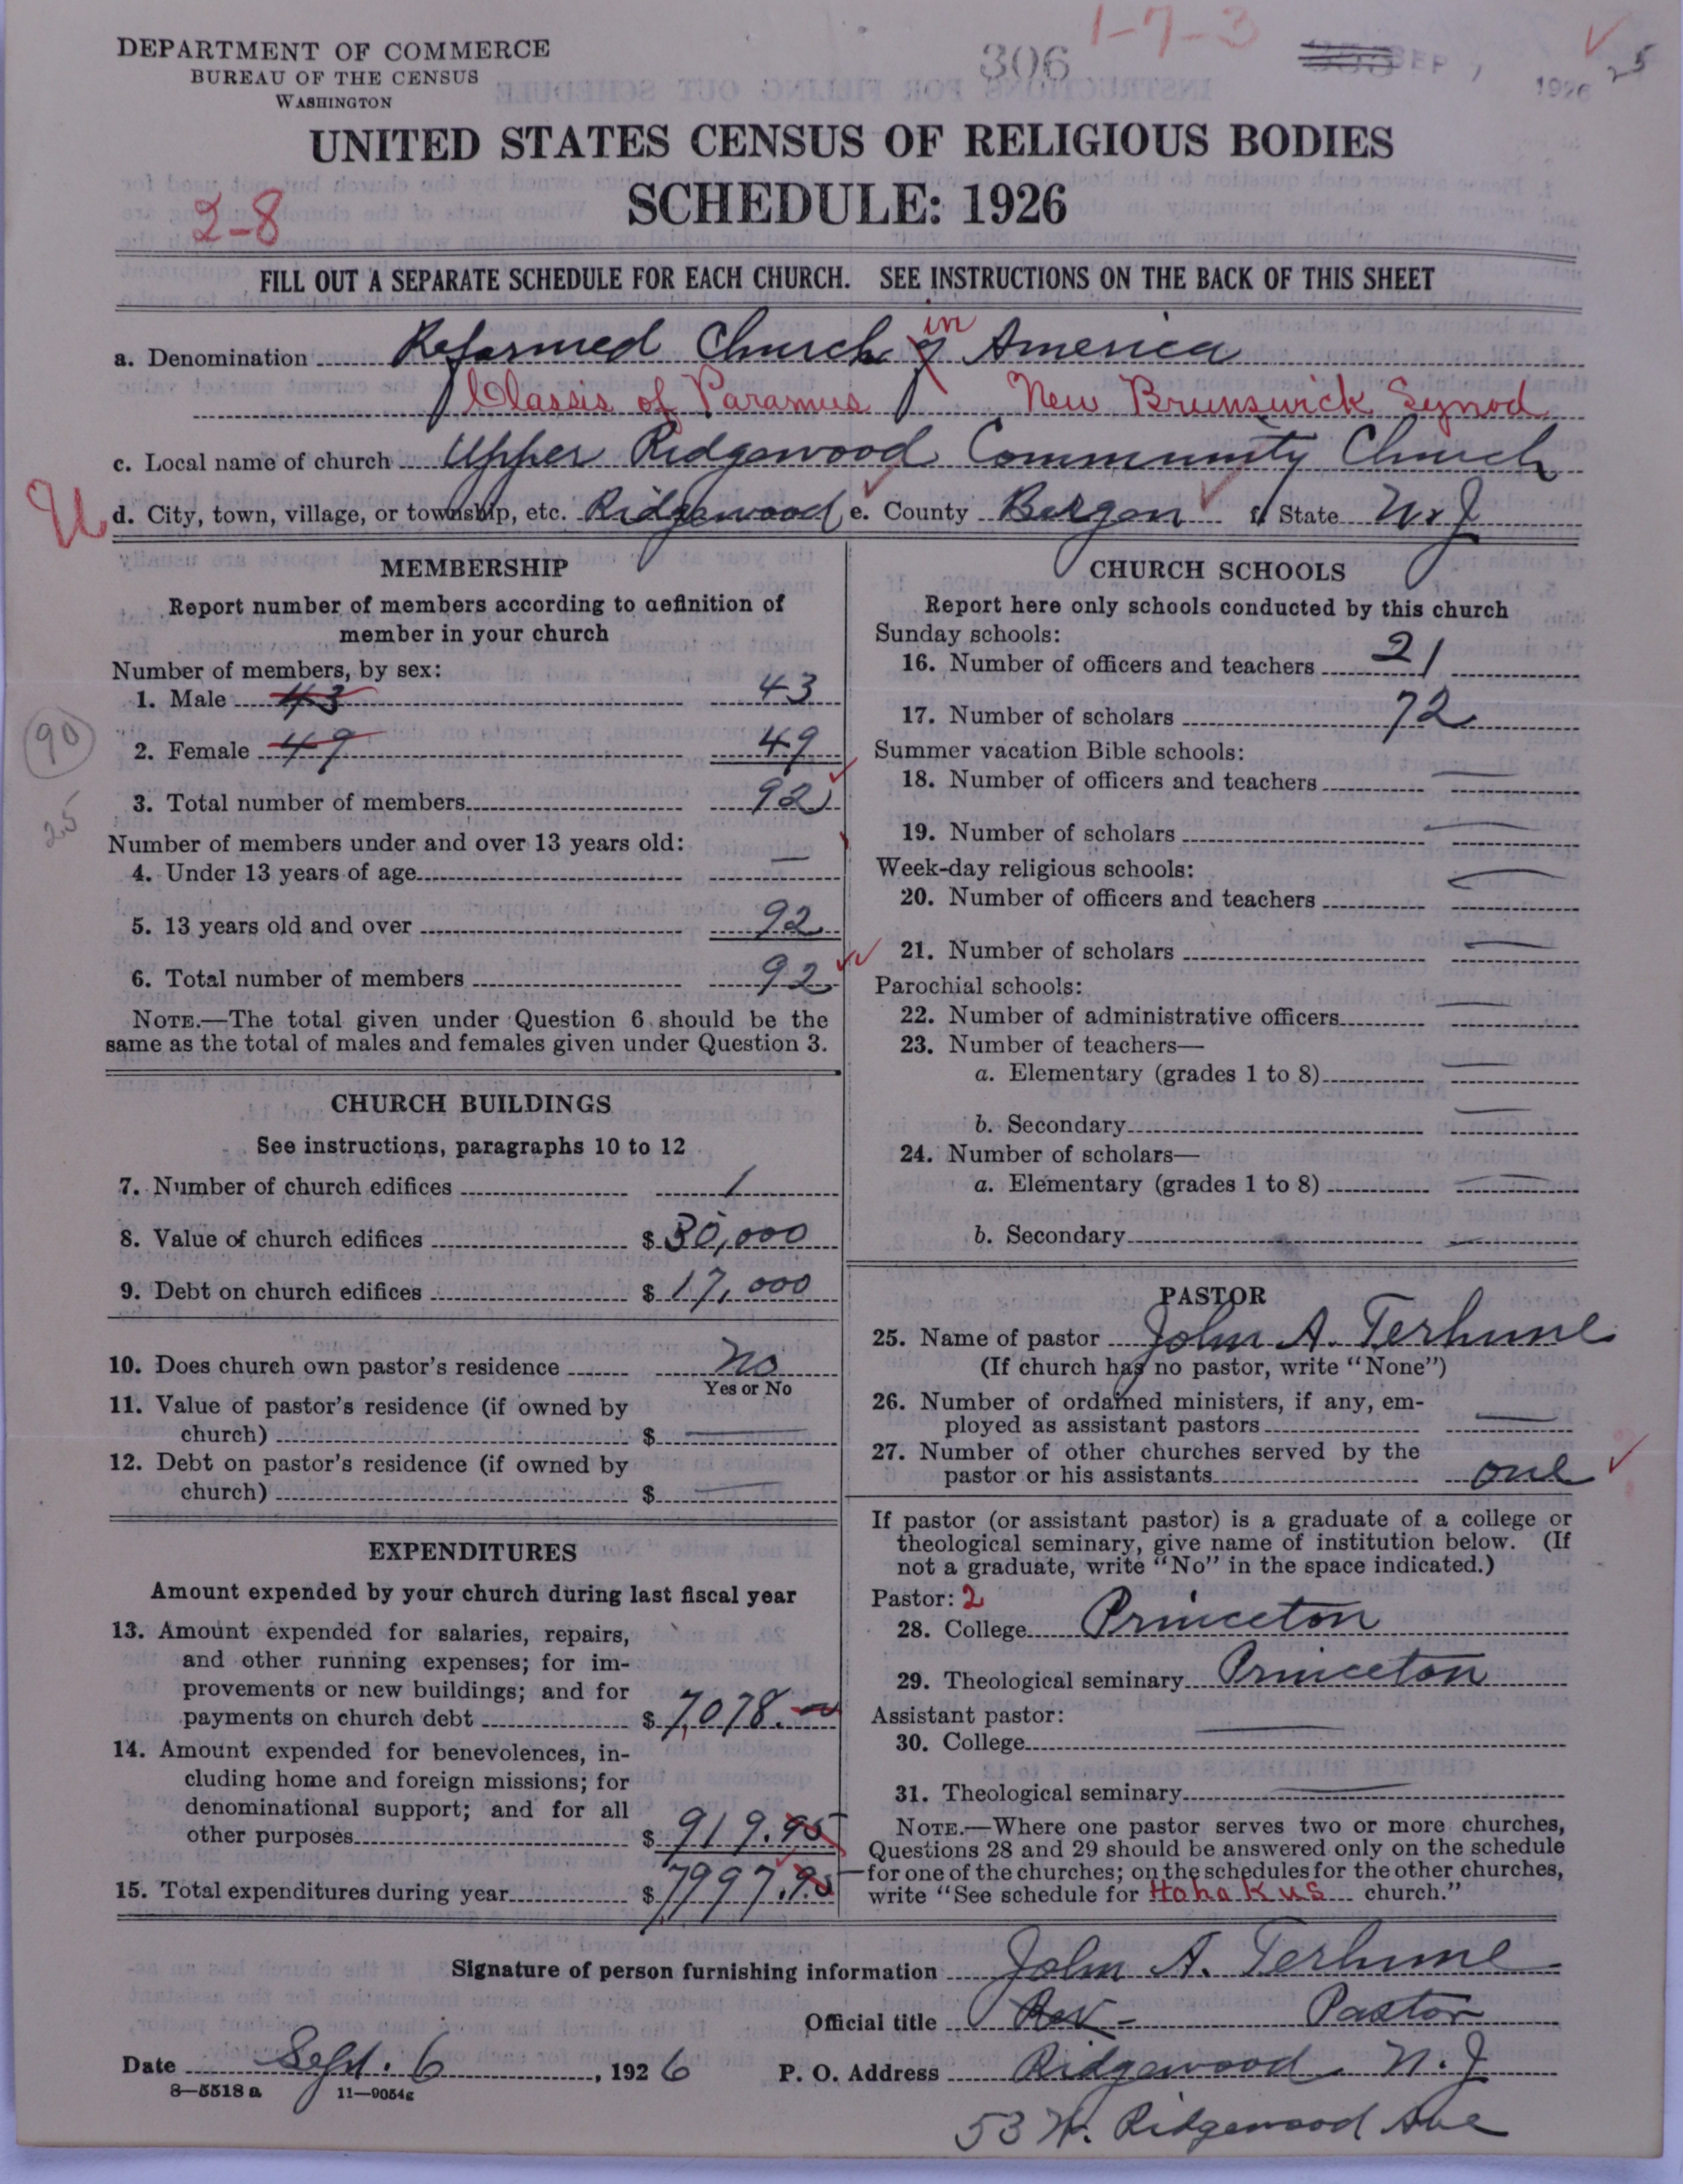 DEPARTMENT OF COMMERCE
BUREAU OF THE CENSUS
WASHINGTON
306
1-7-3
SEP 7 1926
25
UNITED STATES CENSUS OF RELIGIOUS BODIES
SCHEDULE: 1926
2-8
FILL OUT A SEPARATE SCHEDULE FOR EACH CHURCH. SEE INSTRUCTIONS ON THE BACK OF THIS SHEET
a. Denomination Reformed Church of in America
Classis of Paramus New Brunswick Synod
c. Local name of church Upper Ridgewood Community Church
U d. City, town, village, or township, etc. Ridgewood e. County Bergen f. State N. J
MEMBERSHIP
Report number of members according to definition of
member in your church
Number of members, by sex:
1. Male 43 43
2. Female 49 49
90
3. Total number of members 92
25
Number of members under and over 13 years old:
4. Under 13 years of age —
5. 13 years old and over 92
6. Total number of members 92
NOTE.—The total given under Question 6 should be the
same as the total of males and females given under Question 3.
CHURCH BUILDINGS
See instructions, paragraphs 10 to 12
7. Number of church edifices 1
8. Value of church edifices $ 30,000
9. Debt on church edifices $ 17,000
10. Does church own pastor's residence No
Yes or No
11. Value of pastor's residence (if owned by
church) $ —
12. Debt on pastor's residence (if owned by
church) $ —
EXPENDITURES
Amount expended by your church during last fiscal year
13. Amount expended for salaries, repairs,
and other running expenses; for im-
provements or new buildings; and for
payments on church debt $ 7,078.—
14. Amount expended for benevolences, in-
cluding home and foreign missions; for
denominational support; and for all
other purposes $ 919.95
15. Total expenditures during year $ 7997.95
CHURCH SCHOOLS
Report here only schools conducted by this church
Sunday schools:
16. Number of officers and teachers 21
17. Number of scholars 72
Summer vacation Bible schools:
18. Number of officers and teachers —
19. Number of scholars —
Week-day religious schools:
20. Number of officers and teachers —
21. Number of scholars —
Parochial schools:
22. Number of administrative officers —
23. Number of teachers—
a. Elementary (grades 1 to 8) —
b. Secondary —
24. Number of scholars—
a. Elementary (grades 1 to 8) —
b. Secondary —
PASTOR
25. Name of pastor John A. Terhune
(If church has no pastor, write "None")
26. Number of ordained ministers, if any, em-
ployed as assistant pastors —
27. Number of other churches served by the
pastor or his assistants one
If pastor (or assistant pastor) is a graduate of a college or
theological seminary, give name of institution below. (If
not a graduate, write "No" in the space indicated.)
Pastor: 2
28. College Princeton
29. Theological seminary Princeton
Assistant pastor:
30. College —
31. Theological seminary —
NOTE.—Where one pastor serves two or more churches,
Questions 28 and 29 should be answered only on the schedule
for one of the churches; on the schedules for the other churches,
write "See schedule for Hohokus church."
Signature of person furnishing information John A. Terhune
Official title Rev - Pastor
Date Sept. 6, 1926 P. O. Address Ridgewood N. J
8—5518 a 11—9054g
53 W. Ridgewood Ave